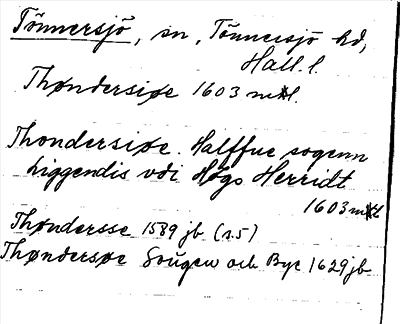 Tönnersjö, sn, Tönnersjö hd,
Hall. l.
Thøndersiøe 1603 mtl.
Thondersiøe. Halffue sogenn
liggendis vdi Høgs Herridt
1603 mtl
Thøndersse 1589 jb (s.5)
Thøndersøe Sougen och Bye 1629 jb